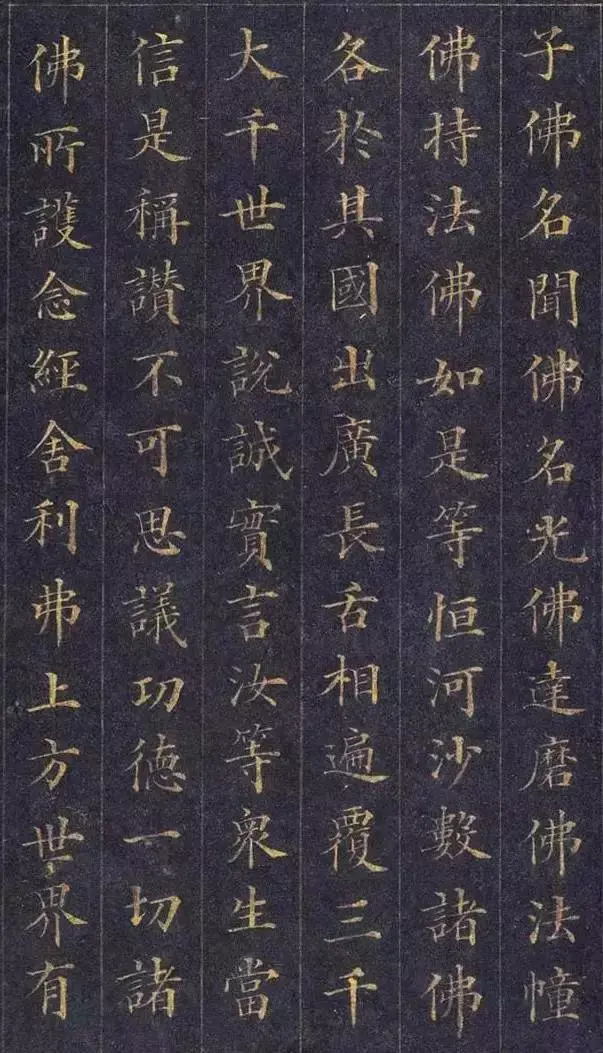 子佛名聞佛名光佛達磨佛法幢
佛持法佛如是等恒河沙數諸佛
各於其國出廣長舌相遍覆三千
大千世界說誠實言汝等衆生當
信是稱讚不可思議功德一切諸
佛所護念經舍利弗上方世界有